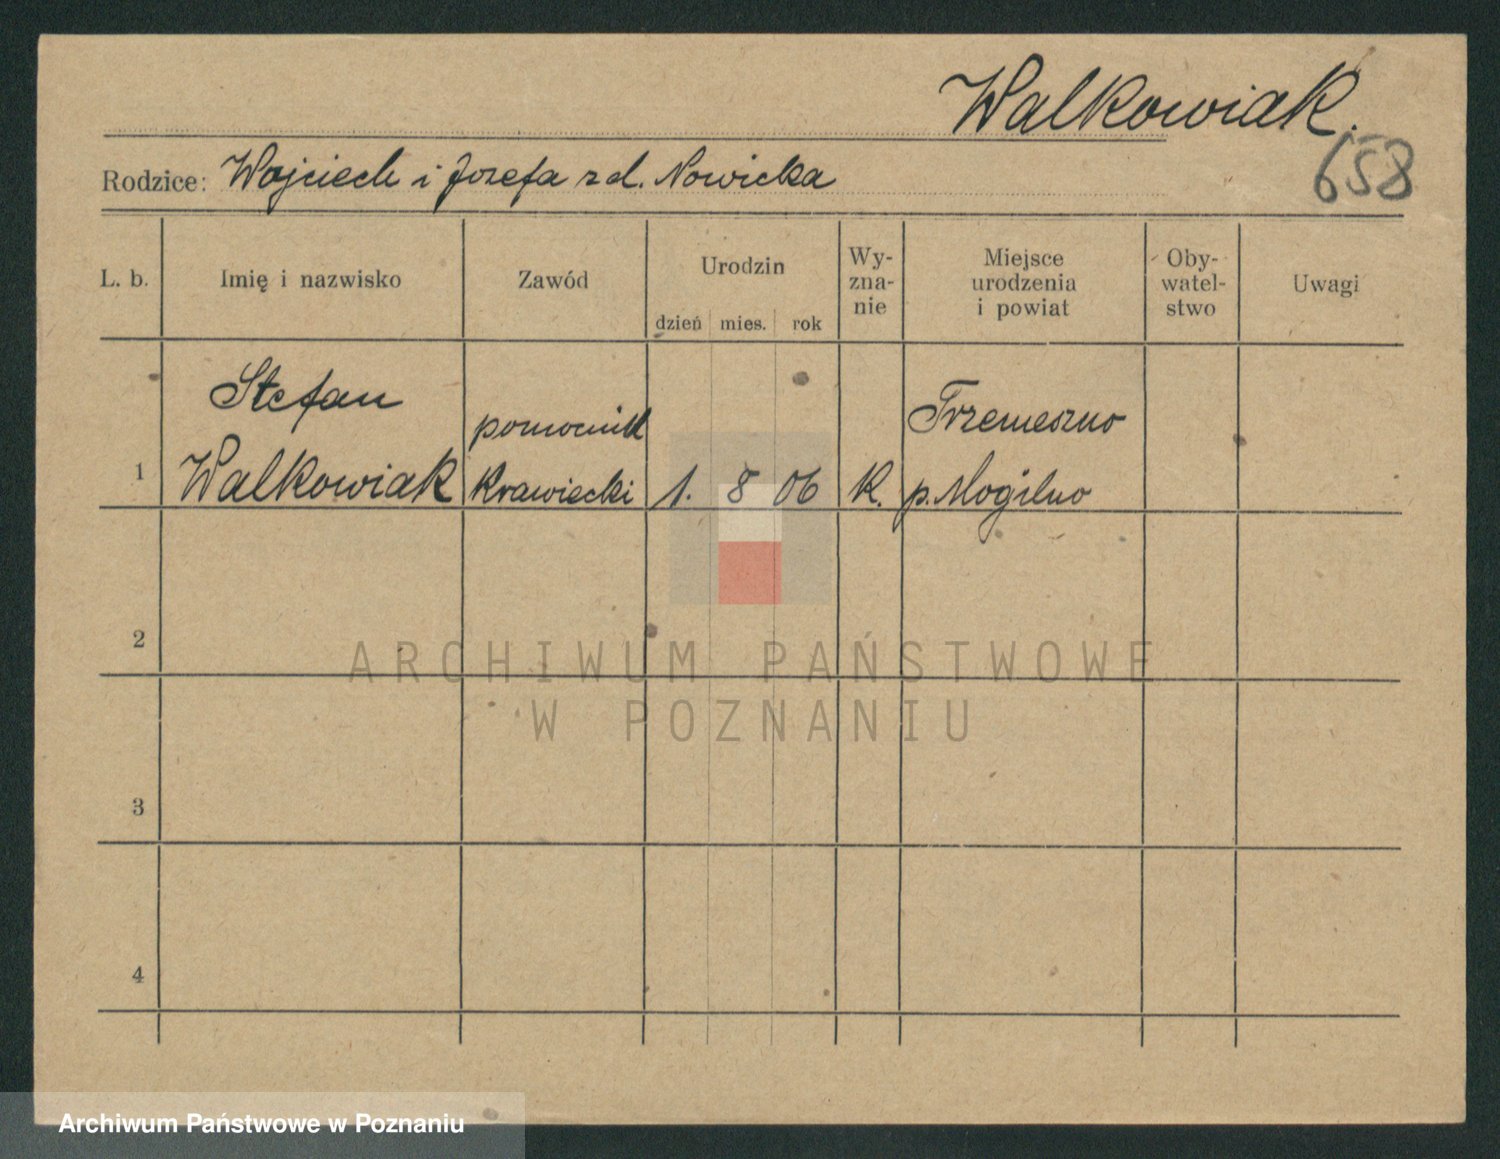 Walkowiak.
658
Rodzice: Wojciech i Jozefa zd. Nowicka
L. b.
Imię i nazwisko
Zawód
Urodzin
dzień mies. rok
Wy-
zna-
nie
Miejsce
urodzenia
i powiat
Oby-
watel-
stwo
Uwagi
1
Stefan
Walkowiak
pomocnik
krawiecki
1. 8 06
K.
Trzemeszno
p. Mogilno
2
ARCHIWUM PAŃSTWOWE
W POZNANIU
3
4
Archiwum Państwowe w Poznaniu